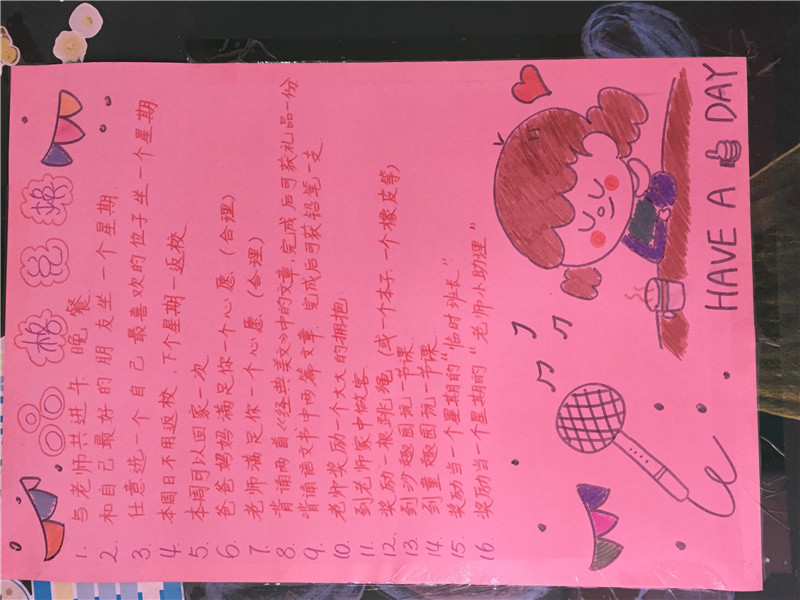 品格兑换
1. 与老师共进午晚餐
2. 和自己最好的朋友坐一个星期
3. 任意选一个自己最喜欢的位子坐一个星期
4. 本周日不用返校，下个星期一返校
5. 本周可以回家一次
6. 爸爸妈妈满足你一个心愿（合理）
7. 老师满足你一个心愿（合理）
8. 背诵两首《经典美文》中的文章，完成后可获礼品一份
9. 背诵语文书中两篇文章，完成后可获铅笔一支
10. 老师奖励一个大大的拥抱
11. 到老师家中做客
12. 奖励一根跳绳（或一个本子，一个橡皮等）
13. 到沙趣园玩一节课
14. 到童趣园玩一节课
15. 奖励当一个星期的"临时班长"
16. 奖励当一个星期的"老师小助理"
HAVE A DAY